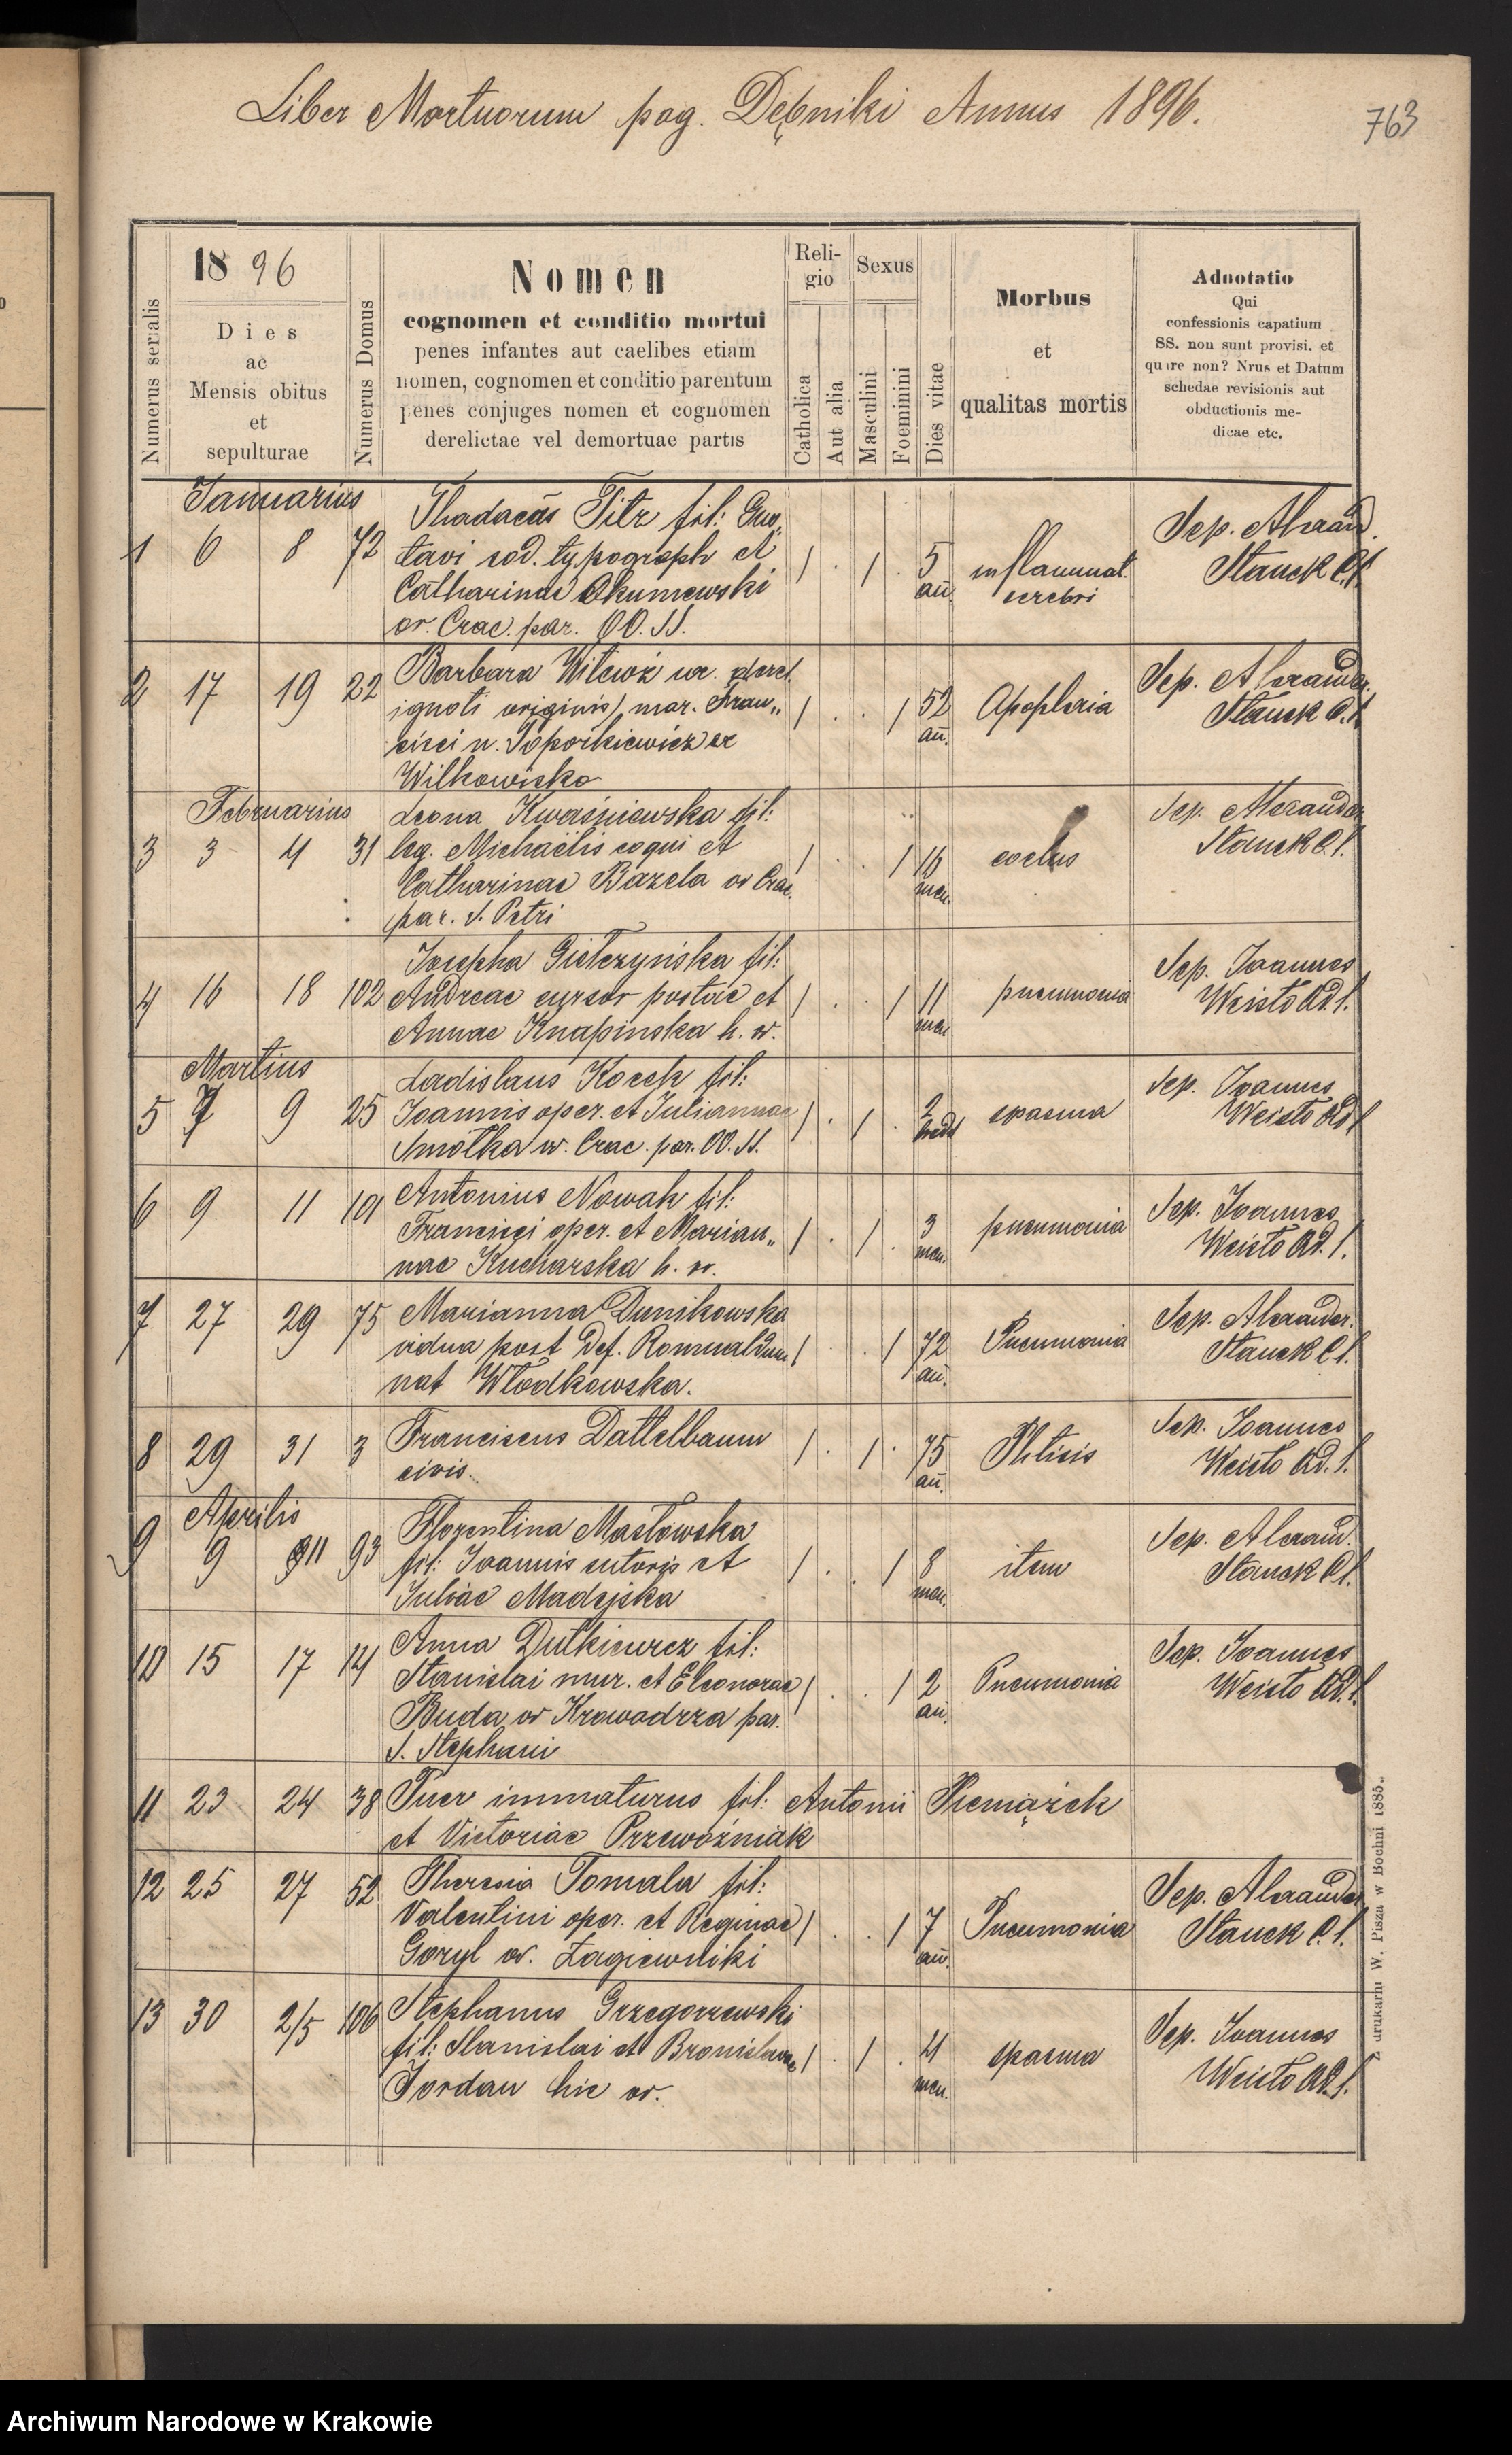 Liber Mortuorum pag. Dębniki Annus 1896.
763
Numerus serialis
1896
Dies
ac
Mensis obitus
et
sepulturae
Numerus Domus
Nomen
cognomen et conditio mortui
penes infantes aut caelibes etiam
nomen, cognomen et conditio parentum
penes conjuges nomen et cognomen
derelictae vel demortuae partis
Reli-
gio
Catholica
Aut alia
Sexus
Masculini
Foeminini
Dies vitae
Morbus
et
qualitas mortis
Adnotatio
Qui
confessionis capatium
SS. non sunt provisi. et
quare non? Nrus et Datum
schedae revisionis aut
obductionis me-
dicae etc.
Januarius
1 6 8 72 Thadaeus Titz fil: Gus„
tavi sod. typograph et
Catharinae
or. Crac. par. OO. SS.
1 . 1 . 5 an. inflammat. cerebri
Sep. Alexand.
Stanek C.l.
2 17 19 22 Barbara
ignoti originis) mar. Fran„
cisci n. Toporkiewicz ex
Wilkowisko
1 . . 1 52 an. Apoplexia
Sep. Alexander
Stanek C.l.
Februarius
3 3 4 31 Leona Kwaśniewska fil:
leg. Michaëlis coqui et
Catharinae Bazela or Crac.
par. S. Petri
1 . . 1 16 men.
Sep. Alexander
Stanek C.l.
4 16 18 102 Josepha Giełczyńska fil:
Andreae cursor postae et
Annae Knapinska h. or.
1 . . 1 11 men. pneumonia
Sep. Joannes
Weisło Ad. l.
Martius
5 7 9 25 Ladislaus Kocek fil:
Joannis oper. et Juliannae
Smółka or. Crac. par. OO. SS.
1 . 1 . 2 spasma
Sep. Joannes
Weisło Ad. l.
6 9 11 101 Antonius Nowak fil:
Francisci oper. et Marian„
nae Kucharska h. or.
1 . 1 . 3 men. pneumonia
Sep. Joannes
Weisło Ad. l.
7 27 29 75 Marianna Dunikowska
vidua post Def. Romualdum
nat Włodkowska.
1 . . 1 72 an. Pneumonia
Sep. Alexander.
Stanek C.l.
8 29 31 3 Franciscus Dattelbaum
civis.
1 . 1 . 75 an. Phtisis
Sep. Joannes
Weisło Ad. l.
Aprilis
9 9 11 93 Florentina Masłowska
fil: Joannis sutoris et
Juliae Madejska
1 . . 1 8 men. item
Sep. Alexand.
Stanek C.l.
10 15 17 14 Anna Dutkiewicz fil:
Stanislai mur. et Eleonorae
Buda or Krowodrza par.
S. Stephani
1 . . 1 2 an. Pneumonia
Sep. Joannes
Weisło Ad. l.
11 23 24 38 Puer immaturus fil: Antonii Pieniążek
et Victoriae Przewoźniak
12 25 27 52 Theresia Tomala fil:
Valentini oper. et Reginae
Goryl or. Łagiewniki
1 . . 1 7 an. Pneumonia
Sep. Alexander
Stanek C.l.
13 30 2/5 106 Stephanus Grzegorzewski
fil: Stanislai et Bronislavae
Jordan hic or.
1 . 1 . 4 men. spasma
Sep. Joannes
Weisło Ad. l.
drukarni W. Pisza w Bochni 1885.
Archiwum Narodowe w Krakowie